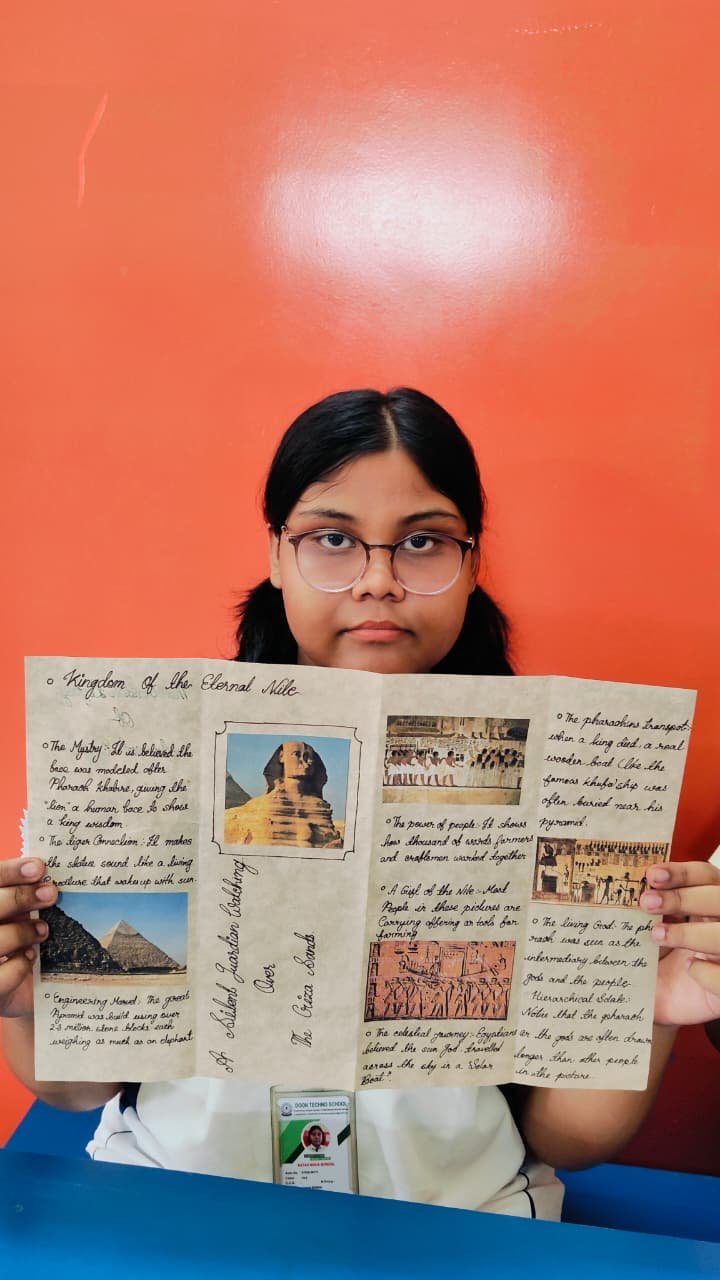 o Kingdom Of the Eternal Nile
Of
o The Mystry:- It is believed the
face was modeled after
Pharaoh Khabure, giving the
"lion" a human face to show
a king wisdom
o The tiger Conneclion: It makes
the statue sound like a living
that wakes up with sun.
o Engineering Marvel: The great
Pyramid was build using over
2.3 million stone blocks each
weighing as much as an elephant
A Silent Guardian Watching
Over
The Giza Sands
o The power of people:- It shows
how thousand of farmers
and craftsmen worked together
o A Gift of the Nile:- Most
People in these pictures are
Carrying offering or tools for
farming
o The celestial journey:- Egyptians
believed the sun God travelled
across the sky in a Solar
Boat".
o The pharaohins transpot:-
when a king died, a real
wooden boat (like the
famous khufu ship was
often buried near his
pyramid.
o The living God:- The pha
raoh was seen as the
intermediary between the
gods and the people.
Hierarchical Scale:
Notes that the pharaoh
or the gods are often drawn
longer than other people
in the picture.
DOON TECHNO SCHOOL